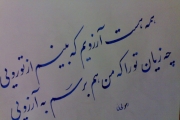 همه هست آرزویم که ببینم از تو رویی
چه زیان تو را که من هم برسم به آرزویی